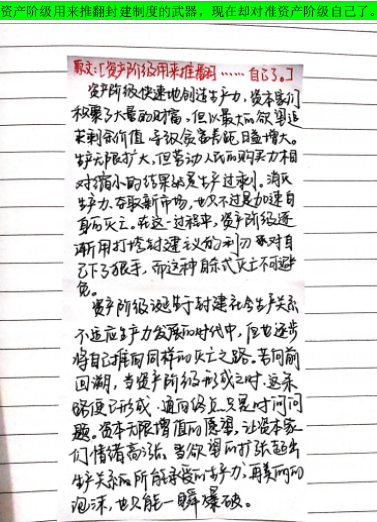 资产阶级用来推翻封建制度的武器，现在却对准资产阶级自己了。
原文：[资产阶级用来推翻……自己了。]
资产阶级快速地创造生产力，资本家们
积累了大量的财富，但以最大的欲望追
求剩余价值，导致贫富差距日益增大。
生产无限扩大，但劳动人民的购买力相
对缩小的结果就是生产过剩。消灭
生产力、夺取新市场，也只不过是加速自
身的灭亡。在这一过程中，资产阶级逐
渐用打垮封建主义的利刃对自
己下了狠手，而这种自杀式灭亡不可避
免。
资产阶级诞生于封建社会生产关系
不适应生产力发展的时代中，但也逐步
将自己推向同样的灭亡之路。若向前
回溯，当资产阶级形成之时，这条
路便已形成，通向终点只是时间问
题。资本无限增值的愿望，让资本家
们情绪高涨。当欲望的扩张超出
生产关系的所能承受的生产力，再美丽的
泡沫，也只能一瞬爆破。